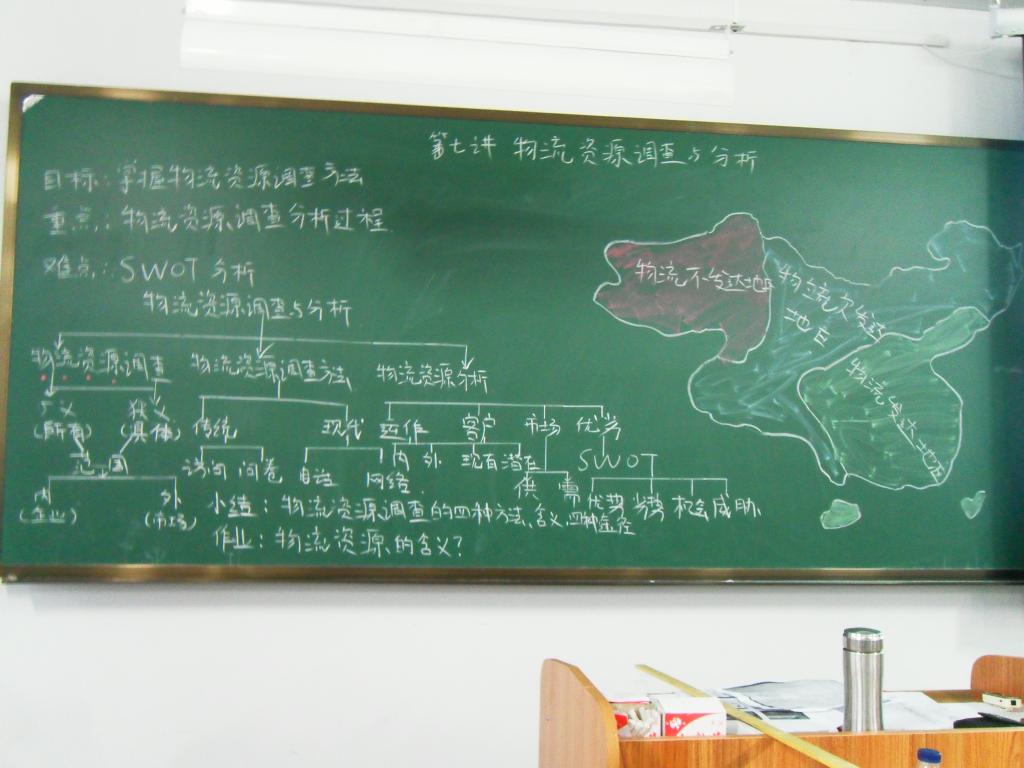 第七讲 物流资源调查与分析
目标：掌握物流资源调查方法
重点：物流资源调查分析过程
难点：SWOT 分析
物流资源调查与分析
物流资源调查 物流资源调查方法 物流资源分析
广义 狭义 传统 现代 运作 客户 市场 优劣
(所有) (具体)
范围 访问 问卷 自动 网络 内 外 现有 潜在 SWOT
内 外 供 需 优势 劣势 机会 威胁
(企业) (市场)
小结：物流资源调查的四种方法、含义、四种途径
作业：物流资源的含义？
物流不发达地区
物流次发达
地区
物流发达地区